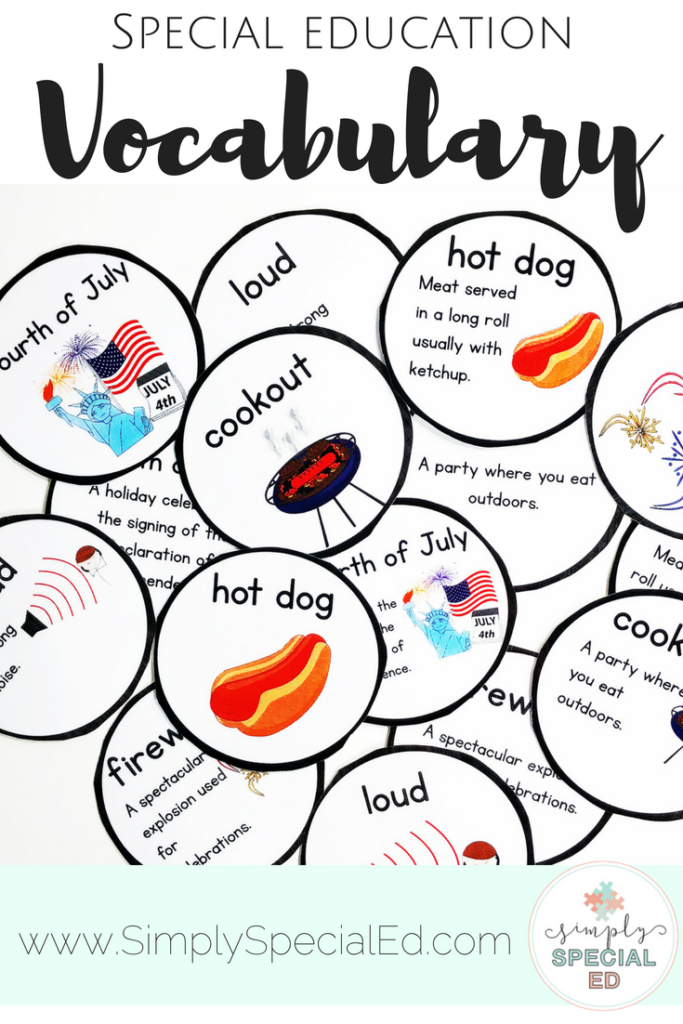 SPECIAL EDUCATION
Vocabulary
ourth of July
JULY
4th
loud
rong
hot dog
Meat served
in a long roll
usually with
ketchup.
cookout
A party where you eat
outdoors.
A holiday cele
the signing of th
claration of
pende
rth of July
the
he
of
ence.
JULY
4th
Mea
roll u
ud
ong
oise.
hot dog
cook
A party where
you eat
outdoors.
firew
A spectacular
explosion used
for
lebrations.
rew
A spectacular expl
ebrations.
loud
www.SimplySpecialEd.com
simply
SPECIAL
ED